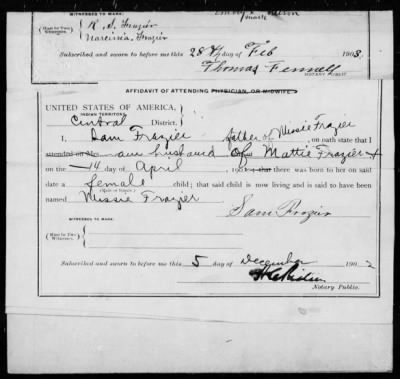 WITNESSES TO MARK:
mark
(Must be Two Witnesses)
N. S. Frazier
Narcissia Frazier
Subscribed and sworn to before me this 28th day of Feb 1903.
Thomas Fennell
NOTARY PUBLIC.
AFFIDAVIT OF ATTENDING PHYSICIAN, OR MIDWIFE.
UNITED STATES OF AMERICA,
INDIAN TERRITORY,
Central District.
I, Sam Frazier father of Missie Frazier, on oath state that I
attended on Mrs. am husband of Mattie Frazier
on the 14 day of April, 190 ; that there was born to her on said
date a female child; that said child is now living and is said to have been
(Male or female)
named Missie Frazier
Sam Frazier
WITNESSES TO MARK:
(Must be Two Witnesses.)
Subscribed and sworn to before me this 5 day of December 1902
Notary Public.